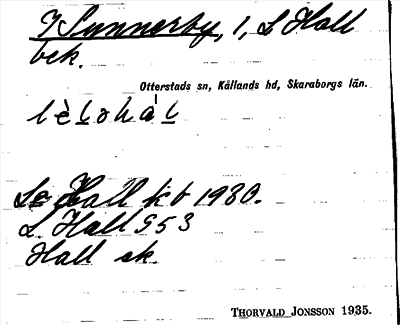 I Synnerby, 1, L Hall
bek.
Otterstads sn, Kållands hd, Skaraborgs län.
La Hall kb 1930.
L. Hall 953
Hall sk
THORVALD JONSSON 1935.